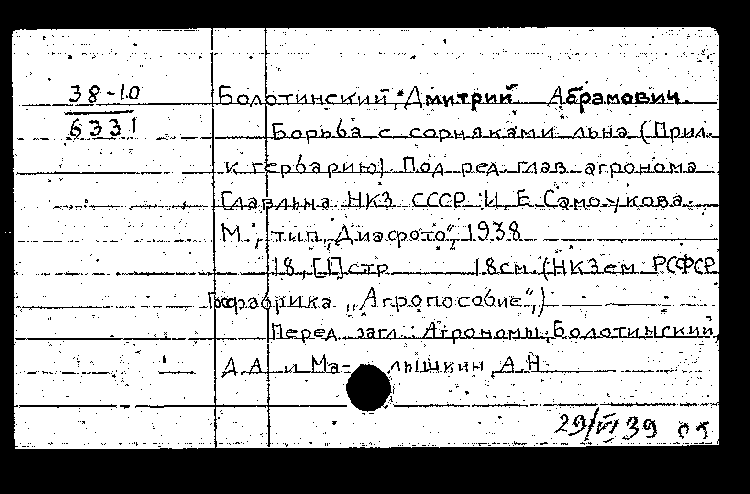 38-10
6331
Болотинский, Дмитрий Абрамович.
Борьба с сорняками льна (Прил.
к гербарию) Под ред глав агронома
Главльна НКЗ СССР И. Е. Самоукова.
М., тип „Диафото", 1938
18, [1] стр 18см. (НКЗем РСФСР
Госфабрика „Агропособие",)
Перед загл: Агрономы, Болотинский,
Д.А и Малышкин А.Н.
29/VI 39